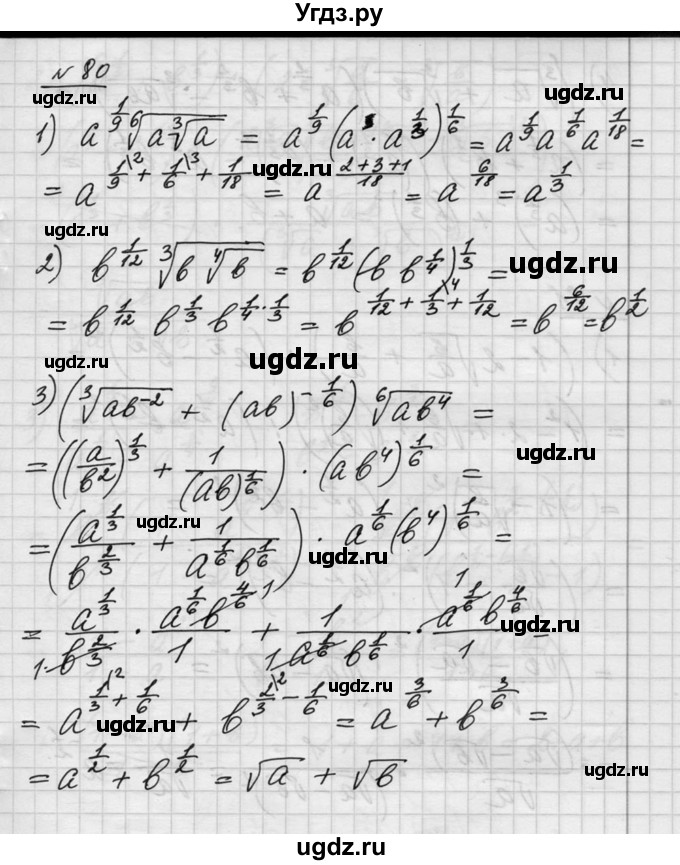 Угдз.ру
№ 80
ugdz.ru
ugdz.ru
1) a^{1/9} \sqrt[6]{a\sqrt[3]{a}} = a^{1/9}(a^{1} · a^{1/3})^{1/6} = a^{1/9} a^{1/6} a^{1/18} =
ugdz.ru
= a^{1/9\2 + 1/6\3 + 1/18} = a^{(2+3+1)/18} = a^{6/18} = a^{1/3}
ugdz.ru
2) b^{1/12} \sqrt[3]{b \sqrt[4]{b}} = b^{1/12}(b b^{1/4})^{1/3} =
ugdz.ru
= b^{1/12} b^{1/3} b^{1/4·1/3} = b^{1/12 + 1/3\4 + 1/12} = b^{6/12} = b^{1/2}
ugdz.ru
ugdz.ru
3) (\sqrt[3]{ab^{-2}} + (ab)^{-1/6}) \sqrt[6]{ab^4} =
ugdz.ru
= ((a/b^2)^{1/3} + 1/(ab)^{1/6}) · (ab^4)^{1/6} =
ugdz.ru
= (a^{1/3}/b^{2/3} + 1/(a^{1/6}b^{1/6})) · a^{1/6}(b^4)^{1/6} =
ugdz.ru
= a^{1/3}/(1·b^{2/3}) · a^{1/6}b^{4/6}/1 + 1/(1 a^{1/6} b^{1/6}) · a^{1/6}b^{4/6}/1 =
ugdz.ru
ugdz.ru
= a^{1/3\2 + 1/6} + b^{2/3\2 - 1/6} = a^{3/6} + b^{3/6} =
ugdz.ru
ugdz.ru
= a^{1/2} + b^{1/2} = √a + √b
ugdz.ru
ugdz.ru
ugdz.ru